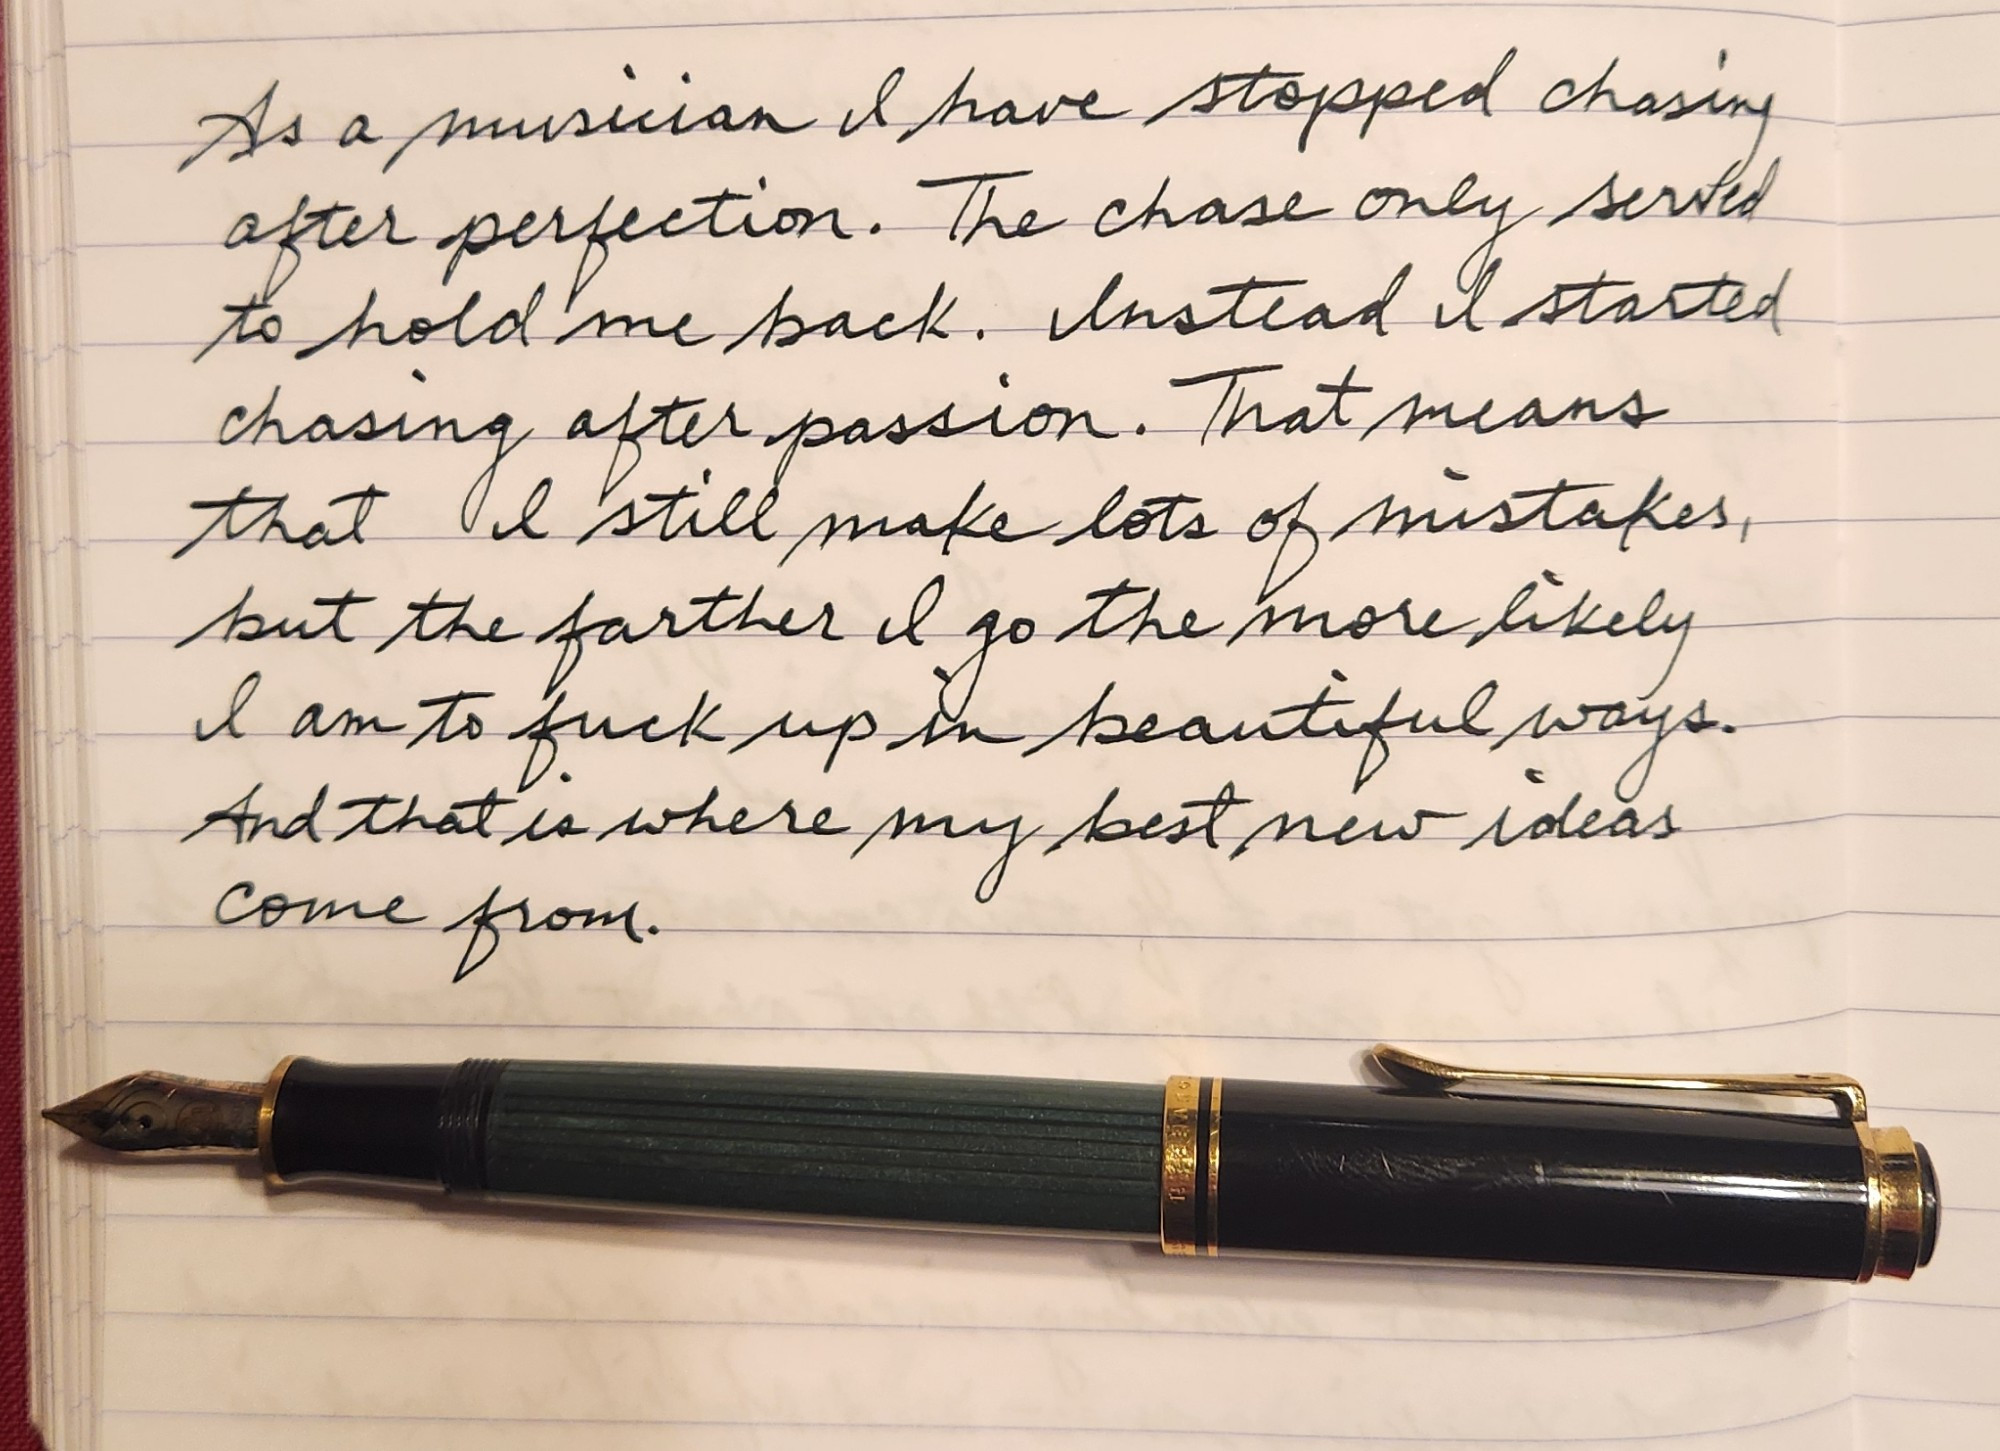 As a musician I have stopped chasing
after perfection. The chase only served
to hold me back. Instead I started
chasing after passion. That means
that I still make lots of mistakes,
but the farther I go the more likely
I am to fuck up in beautiful ways.
And that is where my best new ideas
come from.